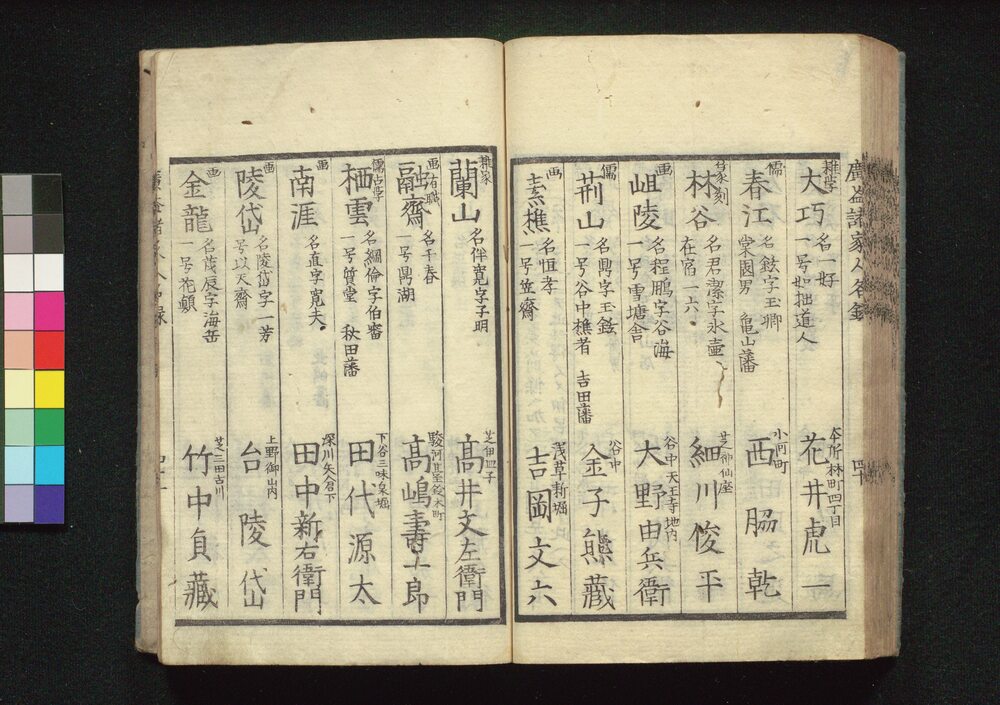 廣益諸家人名録
四十
雑学
大巧
名一好
一号如拙道人
本所林町四丁目
花井虎一
儒
春江
名鉉字玉卿
棠園男 亀山藩
小河町
西脇乾
篆刻
林谷
名君潔字氷壷
在宿一六
芝神仙座
細川俊平
画
岨陵
名程鵬字谷海
一号雪塘舎
谷中天王寺地内
大野由兵衛
儒
荊山
名鼎字玉鉉
一号谷中樵者 吉田藩
谷中
金子熊藏
画
素樵
名恒孝
一号笠齋
浅草新堀
吉岡文六
雑家
蘭山
名伴寛字子明
芝伊皿子
髙井文左衛門
画有職
融齋
名千春
一号鼎湖
駿河臺鈴木町
髙嶋壽一郎
儒古学
栖雲
名綱倫字伯審
一号質堂 秋田藩
下谷三味泉堀
田代源太
画
南涯
名直字寛夫
深川矢ノ倉下
田中新右衛門
画
陵岱
名陵岱字一芳
号以天齋
上野御山内
台陵岱
画
金龍
名茂辰字海岳
一号花顛
芝三田古川
竹中貞藏